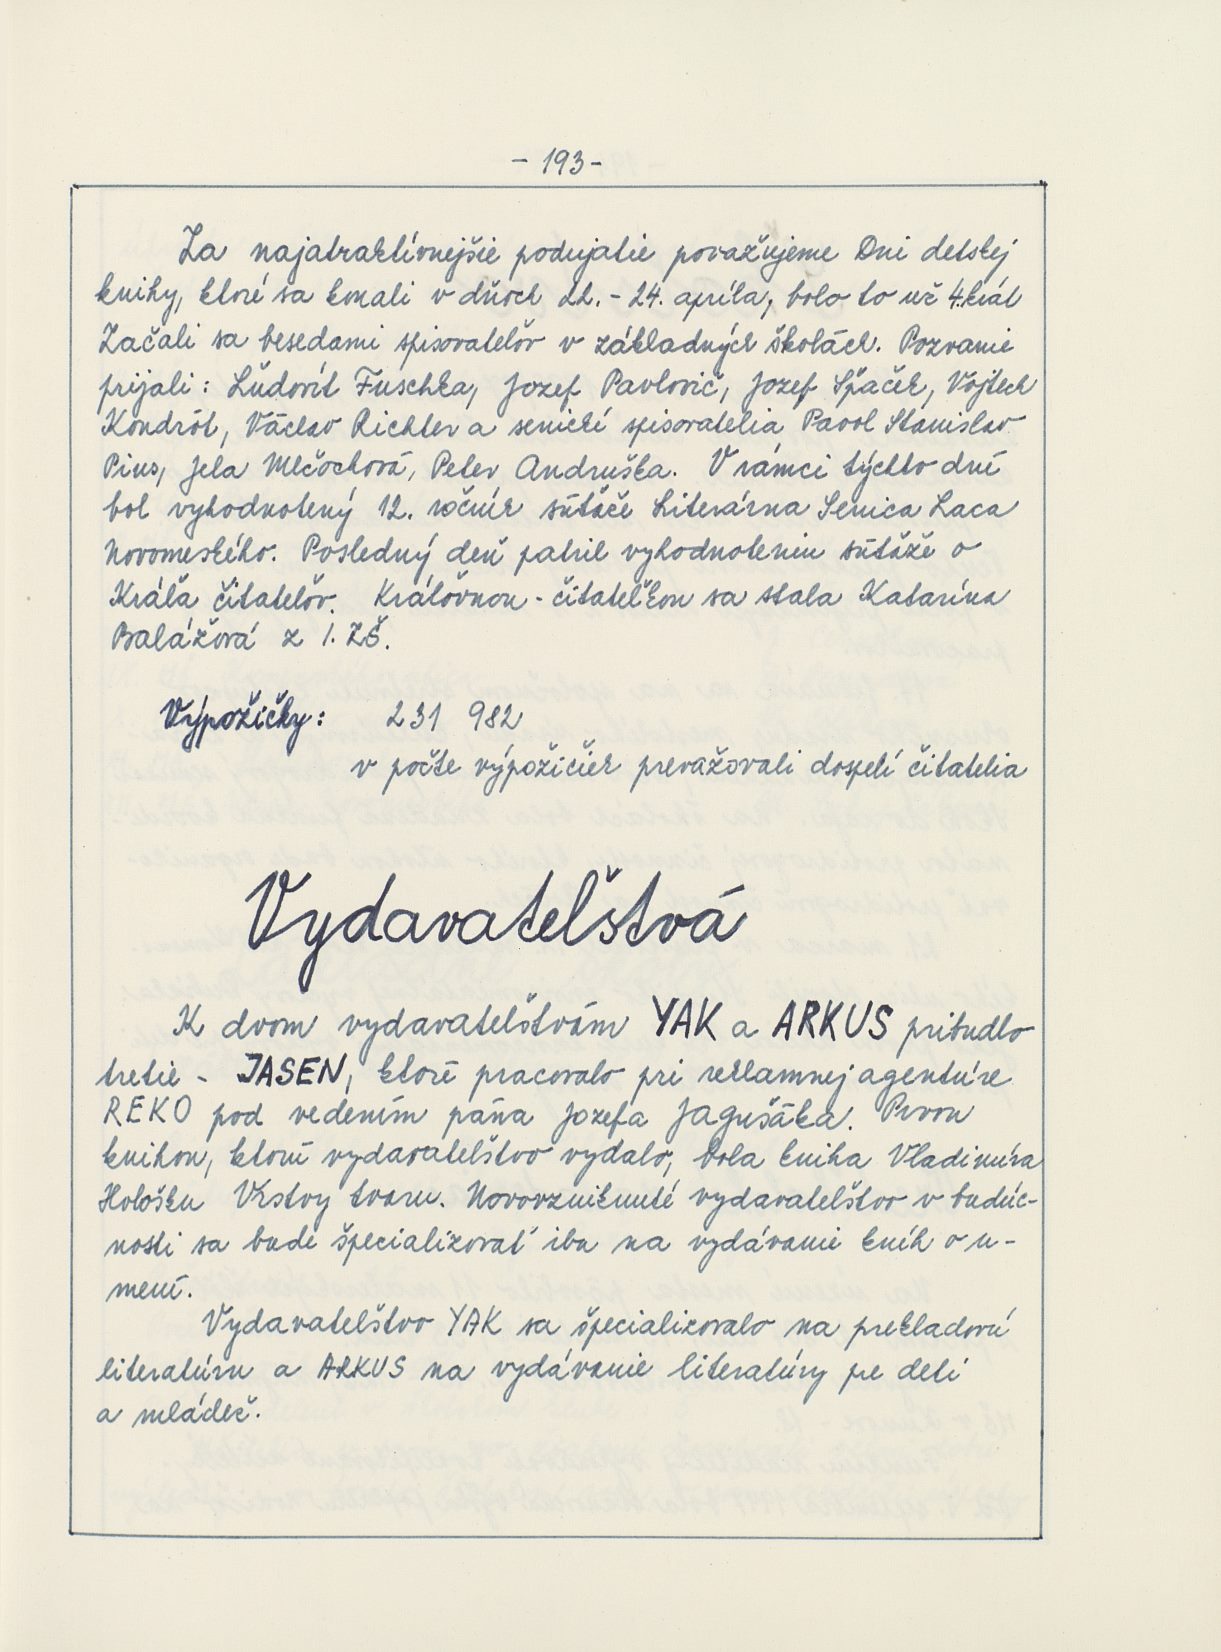 - 193 -
Za najatraktívnejšie podujatie považujeme Dni detskej
knihy, ktoré sa konali v dňoch 22. - 24. apríla, bolo to už 4. krát
Začali sa besedami spisovateľov v základných školách. Pozvanie
prijali: Ľudovít Fuschka, Jozef Pavlovič, Jozef Špaček, Vojtech
Kondrót, Václav Richter a senickí spisovatelia Pavol Stanislav
Pius, Jela Mlčochová, Peter Andruška. V rámci týchto dní
bol vyhodnotený 12. ročník súťaže Literárna Senica Laca
Novomeského. Posledný deň patril vyhodnoteniu súťaže o
Kráľa čitateľov. Kráľovnou - čitateľkou sa stala Katarína
Balážová z I. ZŠ.
Výpožičky: 231 982
v počte výpožičiek prevažovali dospelí čitatelia
Vydavateľstvá
K dvom vydavateľstvám YAK a ARKUS pribudlo
tretie - JASEN, ktoré pracovalo pri reklamnej agentúre
REKO pod vedením pána Jozefa Jagušáka. Prvou
knihou, ktorú vydavateľstvo vydalo, bola kniha Vladimíra
Hološku Vrstvy tvaru. Novovzniknuté vydavateľstvo v budúc-
nosti sa bude špecializovať iba na vydávanie kníh o u-
mení.
Vydavateľstvo YAK sa špecializovalo na prekladovú
literatúru a ARKUS na vydávanie literatúry pre deti
a mládež.